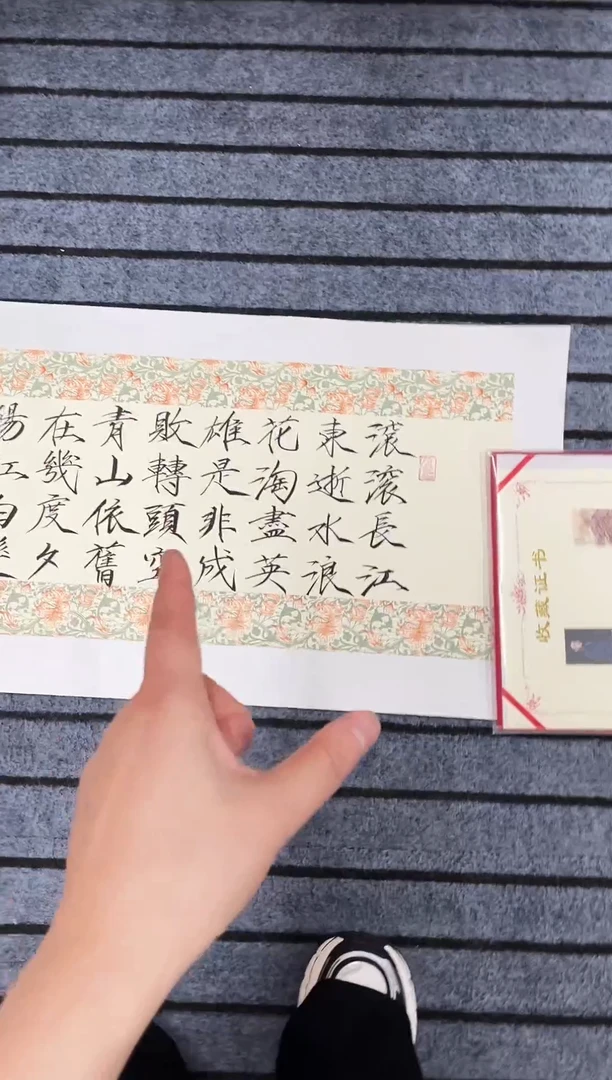 滚滚長江
東逝水浪
花淘盡英
雄是非成
敗轉頭空
青山依舊
在幾度夕
收藏证书